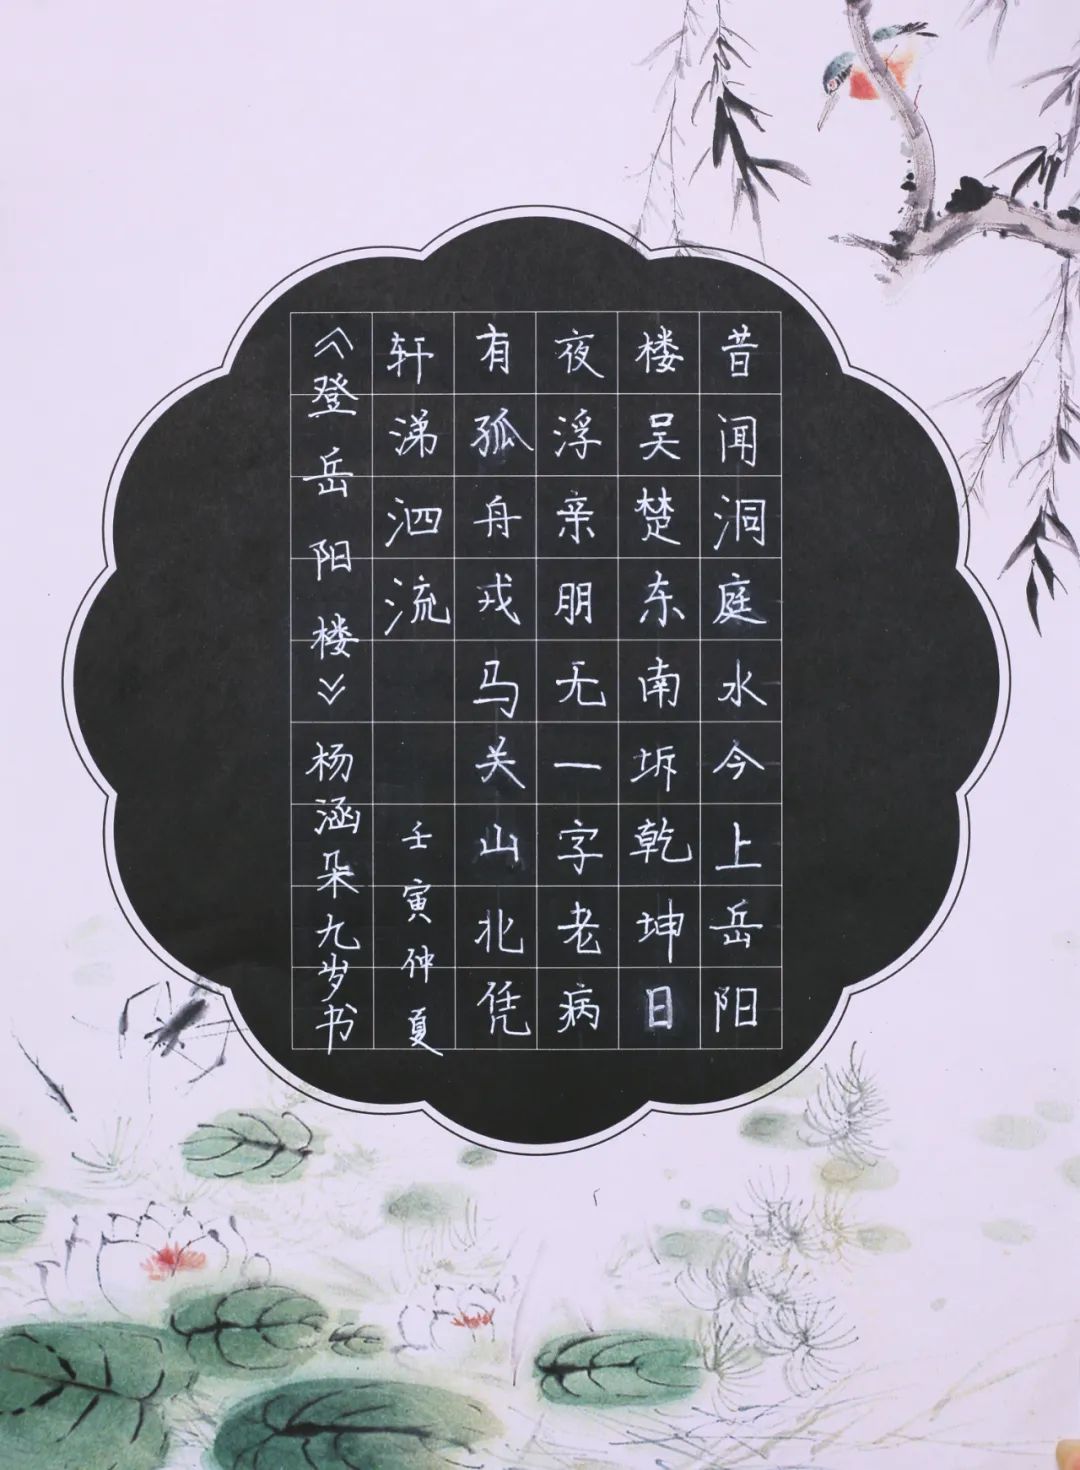 昔闻洞庭水今上岳阳
楼吴楚东南坼乾坤日
夜浮亲朋无一字老病
有孤舟戎马关山北凭
轩涕泗流
壬寅仲夏
《登岳阳楼》杨涵朵九岁书